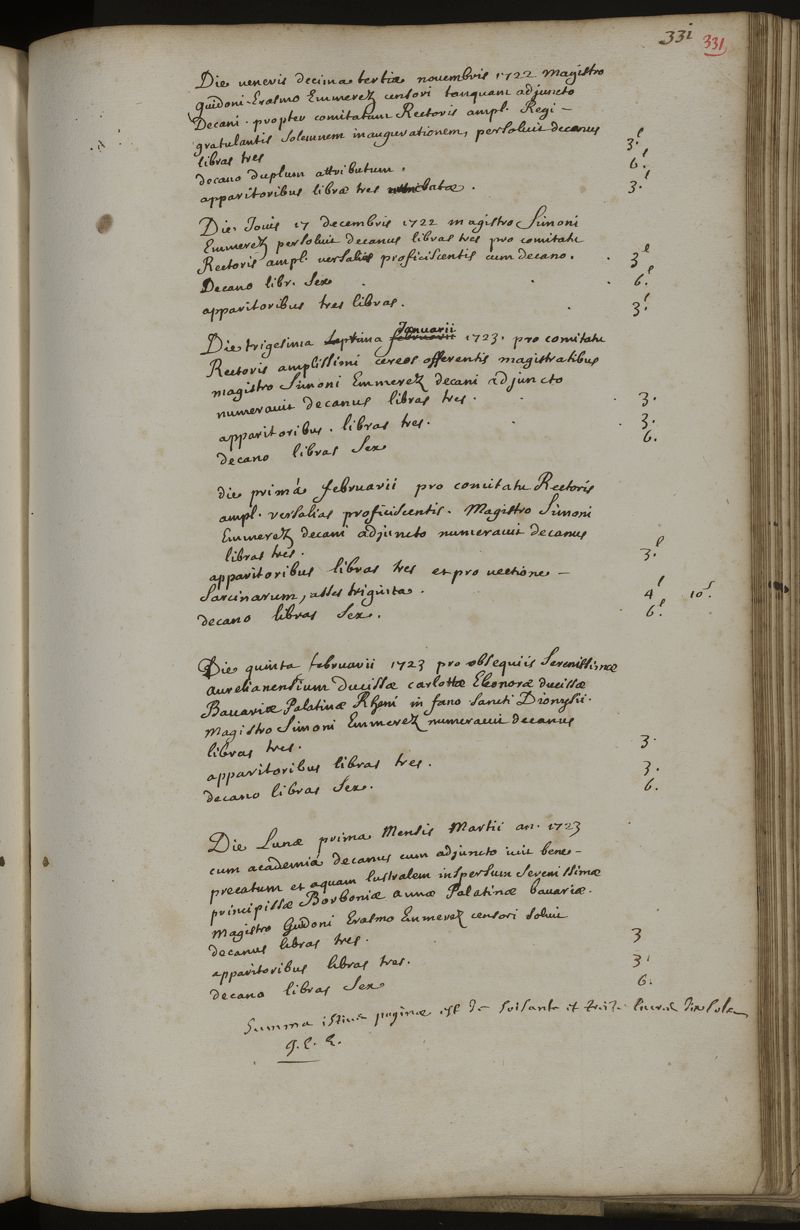 331 331
Die veneris decima tertia novembris 1722 magistro
guidoni-Erasmo Emmerez censori tanquam adjuncto
Decani. propter comitatum Rectoris ampl. Regi —
gratulantis solemnem inaugurationem, persoluit decanus
libras tres 3.l
decano duplum attributum. 6.l
apparitoribus libræ tres batæ. 3.l
Die Jovis 17 decembris 1722 magistro Simoni
Emmerez persoluit decanus libras tres pro comitatu
Rectoris ampl. versalias proficiscentis cum decano. 3l
Decano libr. sex 6.l
apparitoribus tres libras. 3.l
Die trigesima septima februarii Januarii 1723. pro comitatu
Rectoris amplissimi cereos offerentis magistratibus
magistro Simoni Emmerez decani adjuncto
numeravit decanus libras tres. 3.
apparitoribus. libras tres. 3.
decano libras sex 6.
die primâ februarii pro comitatu Rectoris
ampl. versalias proficiscentis. Magistro Simoni
Emmerez decani adjuncto numeravit decanus
libras tres. 3.l
apparitoribus libras tres et pro vectione —
sarcinarum, asses triginta. 4l 10s.
decano libras sex. 6.l
Die quinta februarii 1723 pro obsequiis serenissimæ
aurelianensium Ducissæ carlottæ Eleonoræ ducissæ
Bavariæ Palatinæ Rheni in fano sancti Dionysii.
magistro Simoni Emmerez numeravit decanus
libras tres. 3.
apparitoribus libras tres. 3.
decano libras sex. 6.
Die Lunæ prima Mensis Martii an. 1723
cum academiâ decanus cum adjuncto ivit bene-
precatum et aquam lustralem inspersum serenissimæ
principissæ Borboniæ annæ Palatinæ bavariæ.
magistro Guidoni Erasmo Emmerez censori soluit
decanus libras tres. 3
apparitoribus libras tres. 3.
decano libras sex 6.
Summa istius paginæ est de soisante et treize livres dix sols